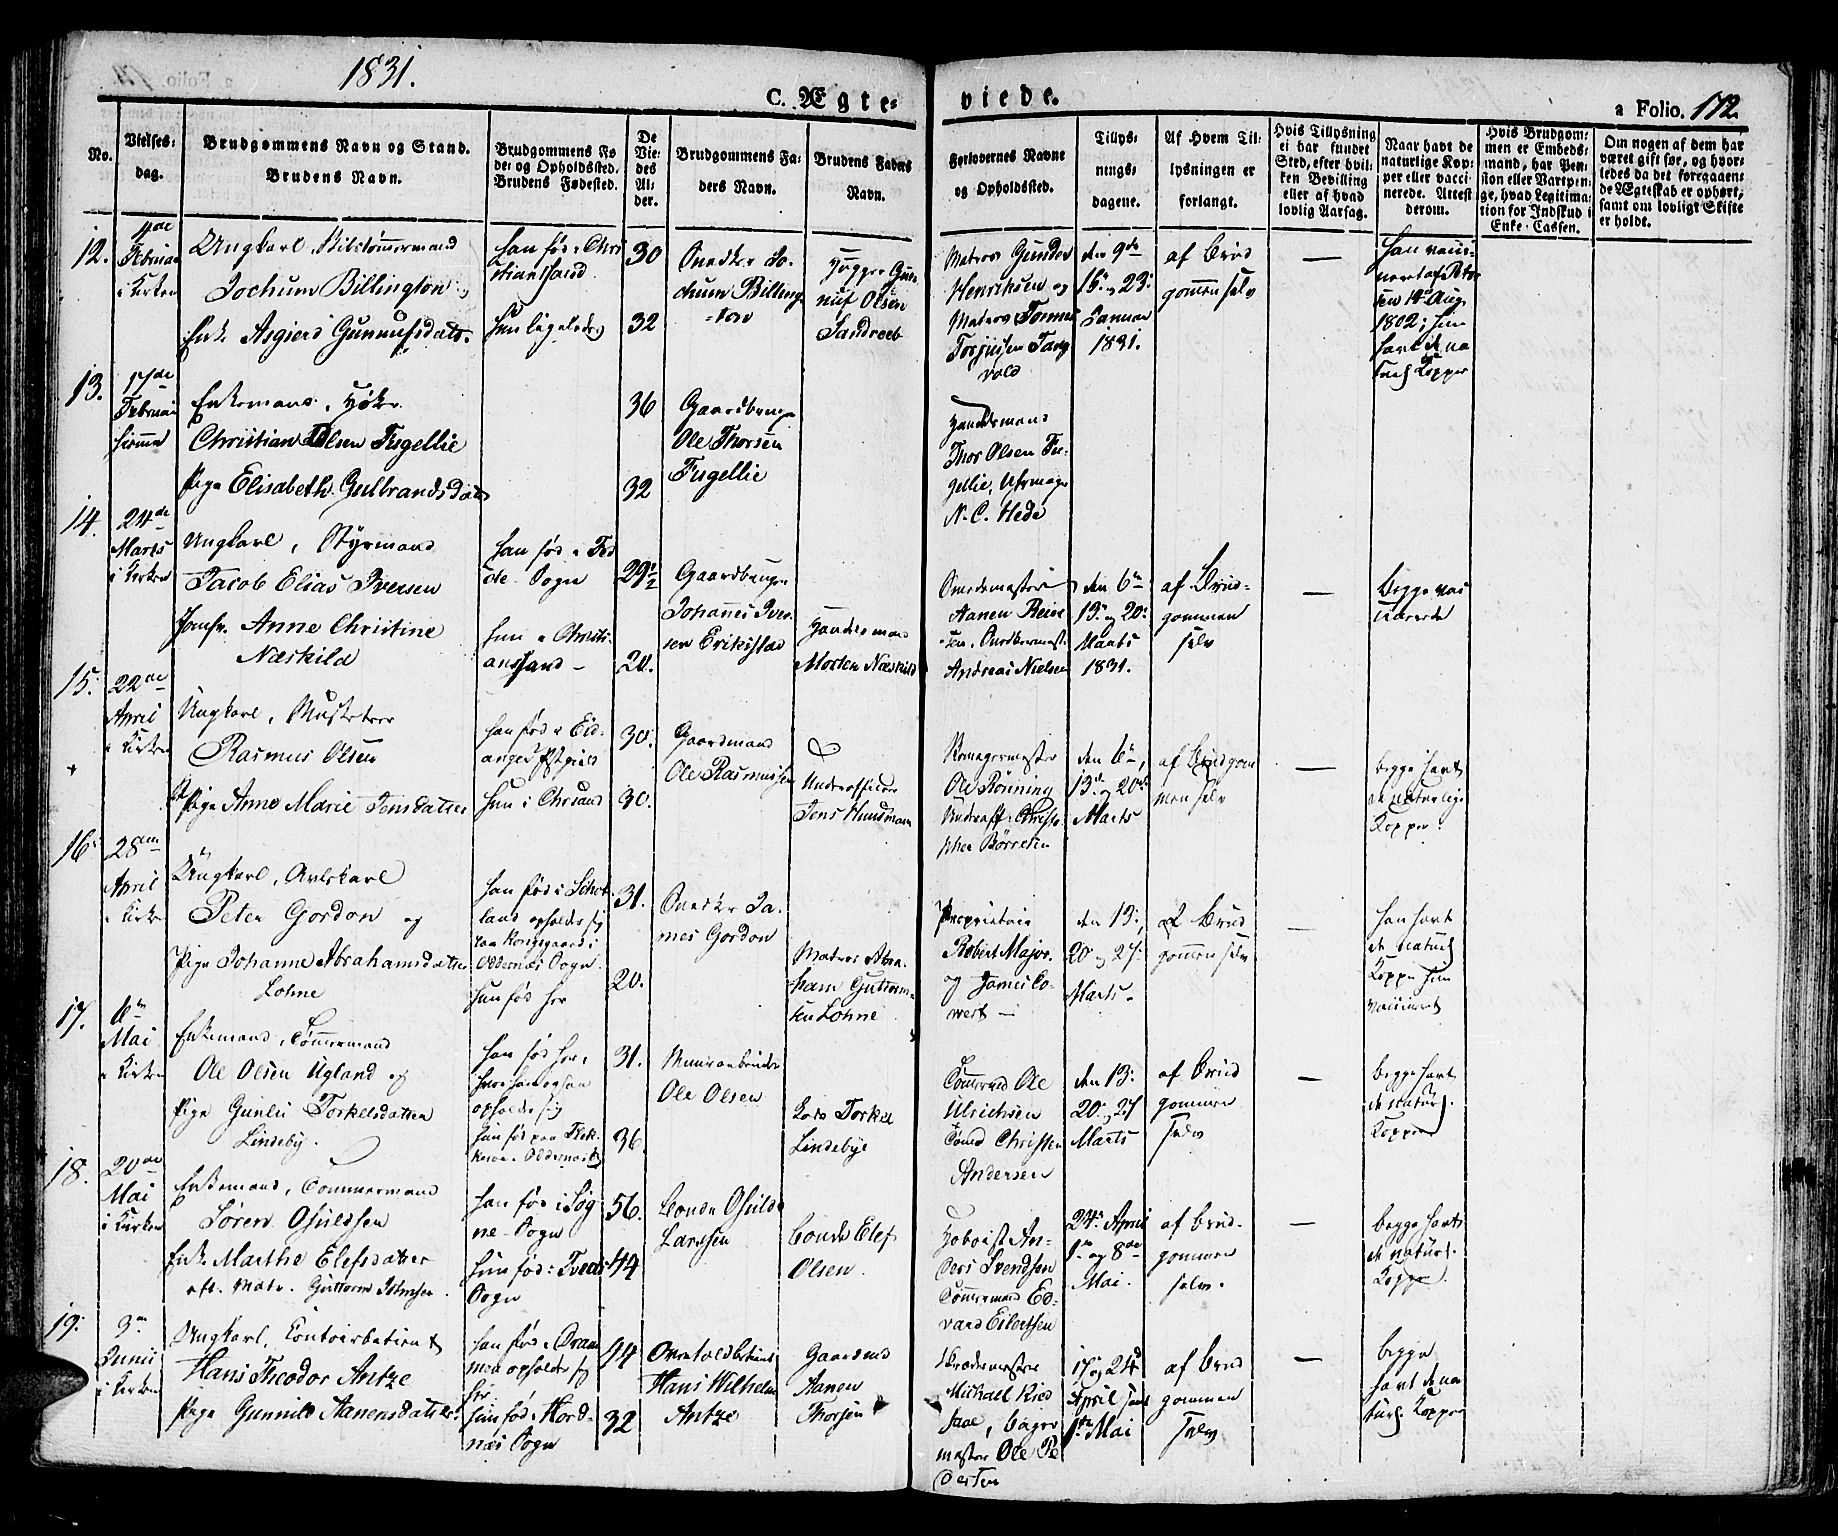 1831.
C. Ægte=
viede.
a Folio. 172.
No.
Vielses-
dag.
Brudgommens Navn og Stand.
Brudens Navn.
Brudgommens Fø-
de- og Opholdssted.
Brudens Fødested.
De
Vie-
des
Al-
der.
Brudgommens Fa-
ders Navn.
Brudens Faders
Navn.
Forlovernes Navne
og Opholdssted.
Tillys-
nings-
dagene.
Af Hvem Til-
lysningen er
forlangt.
Hvis Tillysning
ei har fundet
Sted, efter hvil-
ken Bevilling
eller af hvad
lovlig Aarsag.
Naar havt de
naturlige Kop-
per eller vacci-
nerede. Attest
derom.
Hvis Brudgom-
men er Embeds-
mand, har Pen-
sion eller Vartpen-
ge, hvad Legitima-
tion for Indskud i
Enke-Cassen.
Om nogen af dem har
været gift før, og hvor-
ledes da det foregaaen-
de Ægteskab er ophørt,
samt om lovligt Skifte
er holdt.
12.
Februar
i Kirken
Ungkarl,
Jochum Billington og
Enke Asgierd Gunnufsdatr.
han fød i Chri
stianssand.
hun ligeledes
30
32
Snedker Jo-
chum Billing
=ton
Gun-
nuf Olsen
Sandreeb
Matros Gunder
Henriksen og
Matros Tormus
Torjusen Tang
vald
den 9de
16de og 23de
Januar
1831.
af Brud
gommen selv
—
han vacci-
neret af
den 14de Aug.
1802; hun
havt de na
turl. Kopper
13.
17de
Februar
hiemme
Enkemand, Høker
Christian Olsen Fugellie
Pige Elisabeth Gulbrandsdatr
36
32
Gaardbruger
Ole Thorsen
Fugellie
Handelsmand
Thor Olsen Fu-
gellie, Uhrmager
N. C. Hede
14.
24de
Marts
i Kirken
Ungkarl, Styrmand
Jacob Elias Iversen
Jomfr. Anne Christine
Næskild
han fød i Fed
de Sogn
hun i Christi-
anssand –
29½
20.
Gaardbruger
Johannes Iver
sen Erikstad
Handelsmand
Morten Næskild
Smedemester
Aanen Reier
sen, Snedkermest.
Andreas Nielsen
den 6te
13de og 20de
Marts
1831.
af Brud-
gommen
selv
—
Begge vac
cinerede
15.
22de
April
i Kirken
Ungkarl, Musketeer
Rasmus Olsen
Pige Anne Marie Jensdatter
han fød i Eid-
anger Prstgield
hun i Chrsand
30.
30.
Gaardmand
Ole Rasmussen
Underofficer
Jens Hundman
Ole Rønning
Underoff. Christo
pher Børresen
den 6te,
13de og 20de
Marts
af Brudgom
men selv
—
begge havt
de naturlige
Kopper.
16.
28de
April
i Kirken
Ungkarl, Avlskarl
Peter Gordon og
Pige Johanne Abrahamsdatter
Lohne
han fød i Schot
land opholder sig
paa Kongsgaard i
Oddernæs Sogn.
hun fød her
31.
20.
Snedker Ja-
mes Gordon
Matros Abra
ham Guttorm-
sen Lohne
Proprietair
Robert Major
og James Co-
wert —
den 13de,
20 og 27de
Marts.
af Brud
gommen selv
—
han havt
de naturl
Kopper hun
vaccineret
17.
6te
Mai
i Kirken
Enkemand, Tømmermand
Ole Olsen Ugland og
Pige Gunild Torkelsdatter
Lindeby.
han fød her,
hvor han ogsaa
opholder sig
hun fød paa Flek-
kerø i Oddernæs S.
31.
36.
Muurarbeider
Ole Olsen
Lods Torkel
Lindebye
Tømmermd Ole
Ulrichsen
Tømmd Christen
Andersen
den 13de
20de og 27
Marts
af Brud
gommen
selv
—
begge havt
de naturl.
Kopper
18.
20de
Mai
i Kirken
Enkemand, Tømmermand
Søren Osuldsen
Enke Marthe Elefsdatter
eft. Matr. Guttorm Johnsen.
han fød i Søg
ne Sogn
hun fød i Tveds
Sogn
56.
44
Bonde Osuld
Larssen
Bonde Elef
Olsen
Hoboist An-
ders Svendsen
Tømmermand Ed-
vard Eilertsen
24de April
1ste og 8de
Mai.
af Brud-
gommen
selv.
—
begge havt
de naturl.
Kopper.
19.
3de
Junii
i Kirken
Ungkarl, Contoirbetient
Hans Theodor Antze
Pige Gunnild Aanensdatter.
han fød i Dram
men opholder sig
her
hun fød i Hord-
næs Sogn
44
32
Hans Wilhelm
Antze
Gaardmd
Aanen
Thorsen
Skrædermester
Michael Kied
saae, Bager
mester Ole Pe
dersen
17 og 24de
April samt
1ste Mai
af Brud
gommen
selv
—
begge
havt de na
turl. Kopper